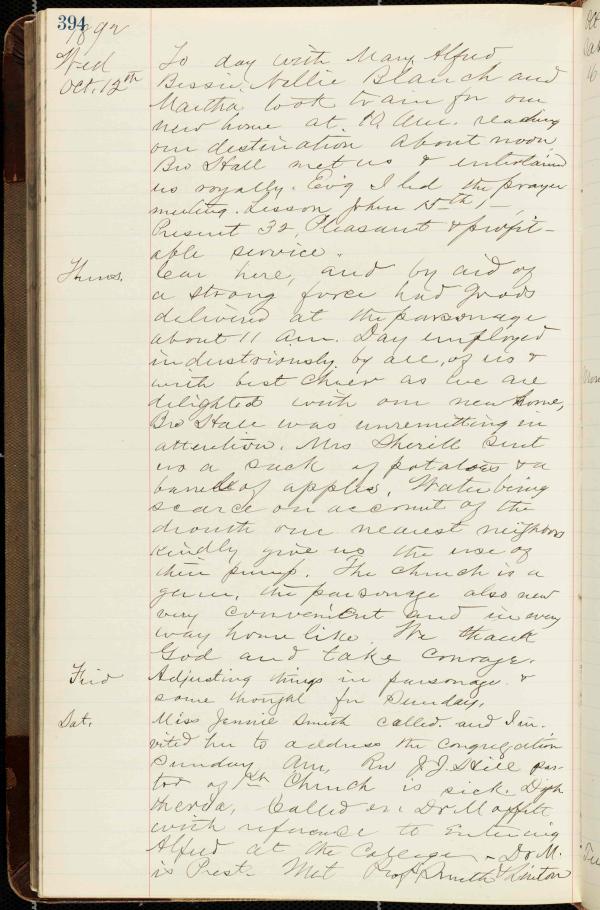 394
1892
Wed To day with Mary, Alfred
Oct. 12th Bessie, Nellie Blanch and
Martha took train for our
new home at 10 Am. reaching
our destination about noon.
Bro Hall met us & entertained
us royally. Ev'g I led the prayer
meeting. Lesson John 15th 1-
Present 32, Pleasant & profit-
able service.
Thurs. Car here, and by aid of
a strong force had goods
delivered at the parsonage
about 11 am. Day employed
industriously by all of us &
with best cheer as we are
delighted with our new home,
Bro Hall was unremitting in
attention. Mrs Sherill sent
us a sack of potatoes & a
barrell of apples. Water being
scarce on account of the
drouth our nearest neighbors
kindly give us the use of
their pump. The church is a
gem, the parsonage also new
very convenient and in every
way home like. We thank
God and take courage.
Frid Adjusting things in parsonage &
some thought for Sunday.
Sat. Miss Jennie Smith called. and I in-
vited her to address the congregation
Sunday Am, Rev J.J. Hill pas-
tor of 1st Church is sick. Diph
theria, Called on Dr Moffitt
with reference to Entering
Alfred at the College - Dr M.
is Prest. Met Prof Smith &